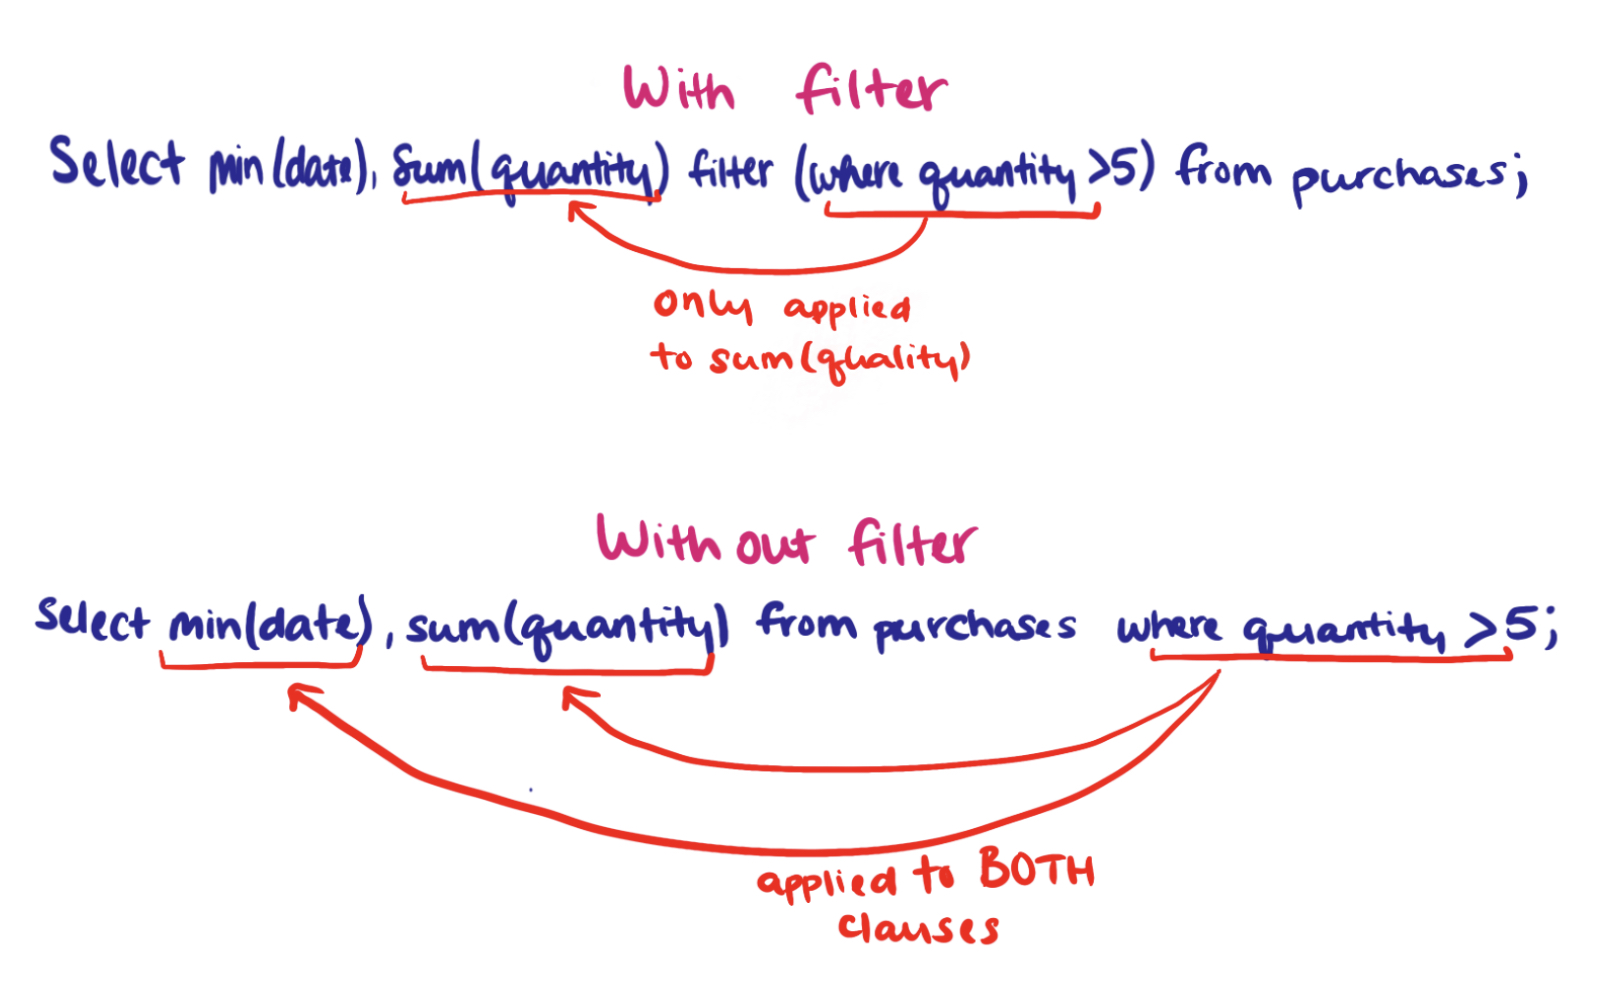 With filter
Select min(date), sum(quantity) filter (where quantity >5) from purchases;
only applied
to sum(quality)
With out filter
Select min(date), sum(quantity) from purchases where quantity >5;
applied to BOTH
clauses